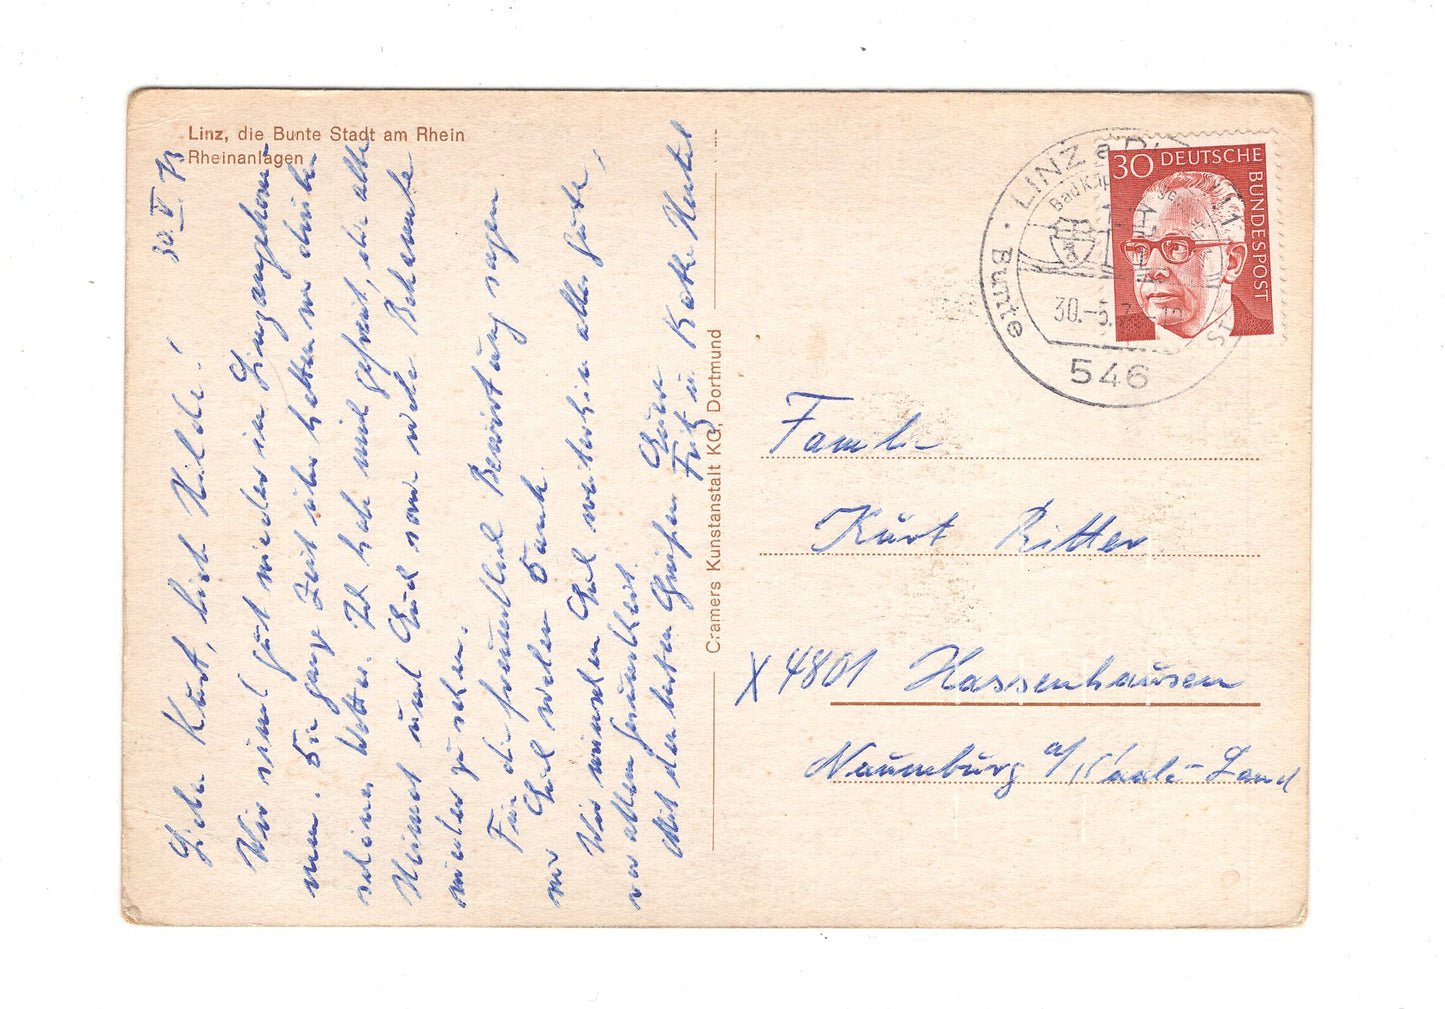 Linz, die Bunte Stadt am Rhein
Rheinanlagen
30. V 73
Liebe Kurt, lieb Hilde!
Wir sind gut wieder in Linz angekom-
men. Die ganz Zeit über hatten wir
schönes Wetter. Ich hab mich gefreut, alle
Heimat und Euch sowie viele Bekannte
wieder zu sehen.
Für die freundlich Bewirtung sagen
wir Euch vielen Dank.
Wir wünschen Euch weiterhin alles Gute,
vor allem Gesundheit.
Mit den besten Grüßen Eure
Fritz u
Cramers Kunstanstalt KG, Dortmund
LINZ a
Bad
Bunte
ST
30.-5.7
546
30 DEUTSCHE
BUNDESPOST
Familie
Kurt Ritter
X 4801 Hassenhausen
Naumburg a/Saale-Land